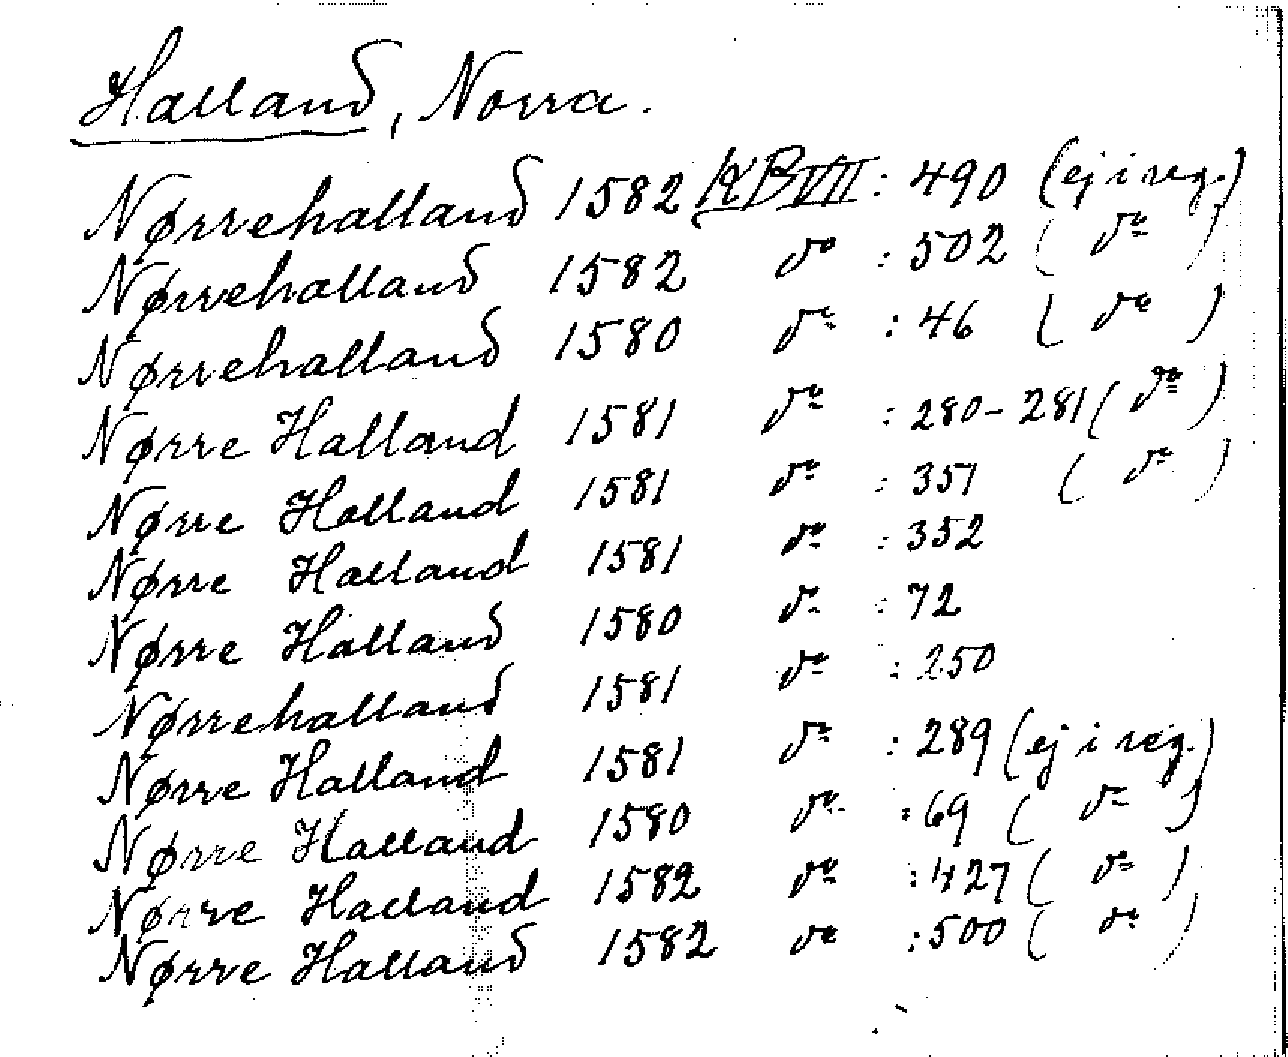 Halland, Norra.
Nørrehalland 1582 KB VII : 490 (ej i reg.)
Nørrehalland 1582 do : 502 ( do )
Nørrehalland 1580 do : 46 ( do )
Nørre Halland 1581 do : 280-281 ( do )
Nørre Halland 1581 do : 351 ( do )
Nørre Halland 1581 do : 352
Nørre Halland 1580 do : 72
Nørrehalland 1581 do : 250
Nørre Halland 1581 do : 289 (ej i reg.)
Nørre Halland 1580 do : 69 ( do )
Nørre Halland 1582 do : 427 ( do )
Nørre Halland 1582 do : 500 ( do )